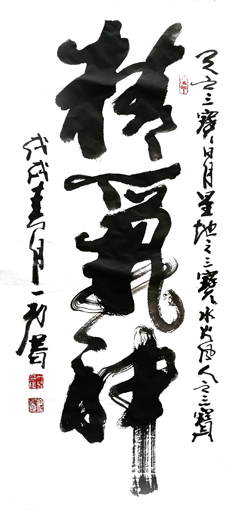 天之三寶日月星地之三寶水火风人之三寶
精氣神
戊戌春月一書